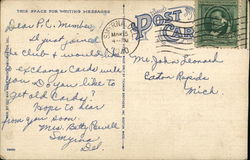 THIS SPACE FOR WRITING MESSAGES
POST CARD
Dear P.C. Member,
I just joined
the club & would like to
exchange cards with
you. Do you like to
get old cards?
Hope to hear
from you soon
Mrs. Betty Powell
Smyrna
Del.
Mr. John Leonard
Eaton Rapids
Mich.